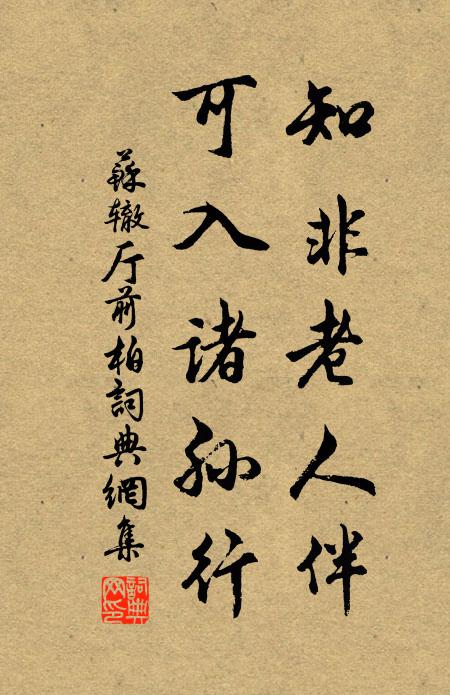 知非老人伴
可入诸孙行
蘇辙厅前柏詞典網集
詞典网印